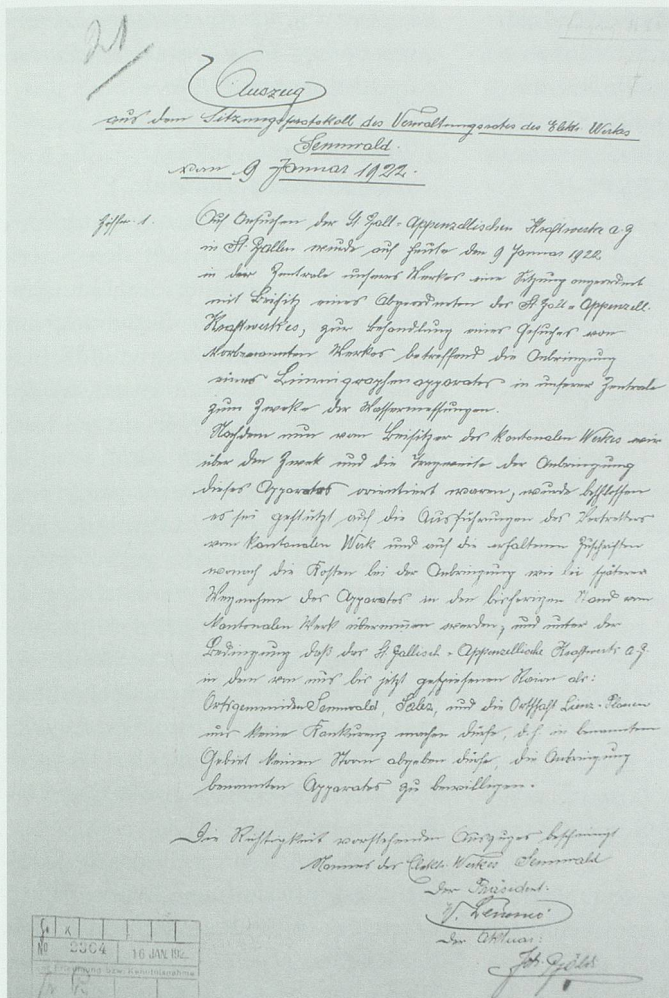 21
Auszug
aus dem Sitzungsprotokoll des Verwaltungsrates des Elektr. Werkes
Sennwald.
vom 9 Januar 1922.
Ziffer 1. Auf Ansuchen der St. Gall-Appenzellischen Kraftwerke a.g
in St Gallen wurde auf heute den 9 Januar 1922.
in der Zentrale unseres Werkes eine Sitzung angeordnet
mit Beisitz eines Abgeordneten des St. Gall-Appenzell.
Kraftwerkes, zur Behandlung eines Gesuches von
Vorbenannten Werkes betreffend die Anbringung
eines Limnigraphenapparates in unserer Zentrale
zum Zweke der Wassermessungen.
Nachdem nun vom Beisitzer des kantonalen Werkes wir
über den Zwek und die Tragweite der Anbringung
dieses Apparates orientiert waren, wurde beschlossen
es sei gestützt auf die Ausführungen des Vertretters
vom kantonalen Werk und auf die erhaltenen Zuschriften
wonach die Kosten bei der Anbringung wie bei späterer
Wegnahme des Apparates in den bisherigen Stand vom
kantonalen Werk übernommen werden, und unter der
Bedingung daß das St. Gallisch-Appenzellische Kraftwerk a.g.
in dem von uns bis jetzt gespiesenen Rayon als:
Ortsgemeinden Sennwald, Salez, und die Ortschaft Lienz-Plonen
uns keine Konkurenz machen dürfe, d.h in benanntem
Gebiet keinen Strom abgeben dürfe, die Anbringung
benannten Apparates zu bewilligen.
Die Richtigkeit vorstehenden Auszuges bescheinigt
Namens des Elektr. Werkes Sennwald
Der Präsident:
Der Aktuar:
Joh.
No 2364 16 JAN. 192